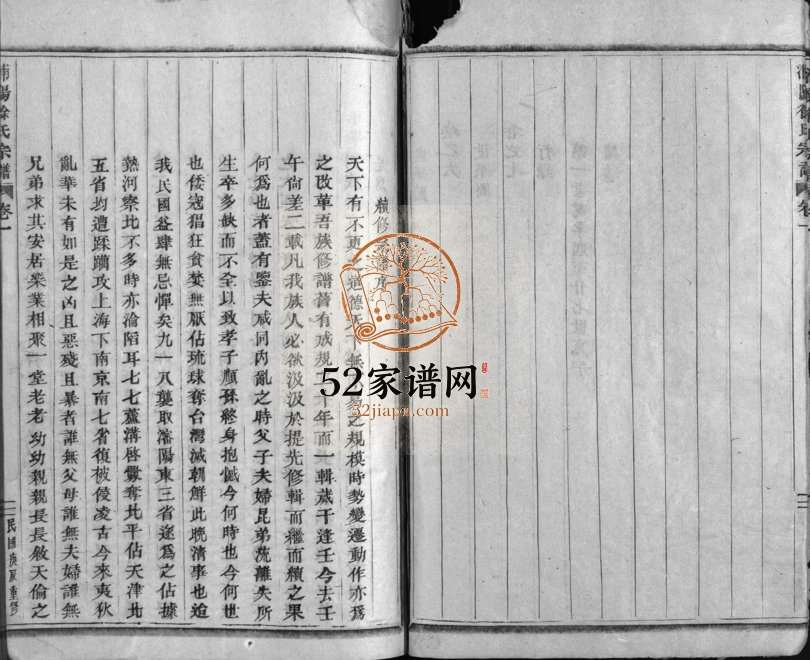 續修
天下有不更之道德天下無 之規模時勢變遷動作亦爲
之改革吾族修譜舊有成規 年而一輯歲干逢壬今去壬
午尙差二載凡我族人必欲汲汲於提先修輯而繼而續之果
何爲也者蓋有鑒夫咸同內亂之時父子夫婦昆弟流離失所
生卒多缺而不全以致孝子順孫終身抱憾今何時也今何世
也倭寇猖狂貪婪無厭佔琉球奪台灣滅朝鮮此晩清事也迨
我民國益肆無忌憚矣九一八襲取瀋陽東三省遂爲之佔據
熱河察北不多時亦淪陷耳七七蘆溝啓釁奪北平佔天津北
五省均遭蹂躪攻上海下南京南七省復被侵凌古今來夷狄
亂華未有如是之凶且惡殘且暴者誰無父母誰無夫婦誰無
兄弟求其安居樂業相聚一堂老老幼幼親親長長敘天倫之
浦陽徐氏宗譜 卷一
民國庚辰重修
52家谱网
52jiapu.com